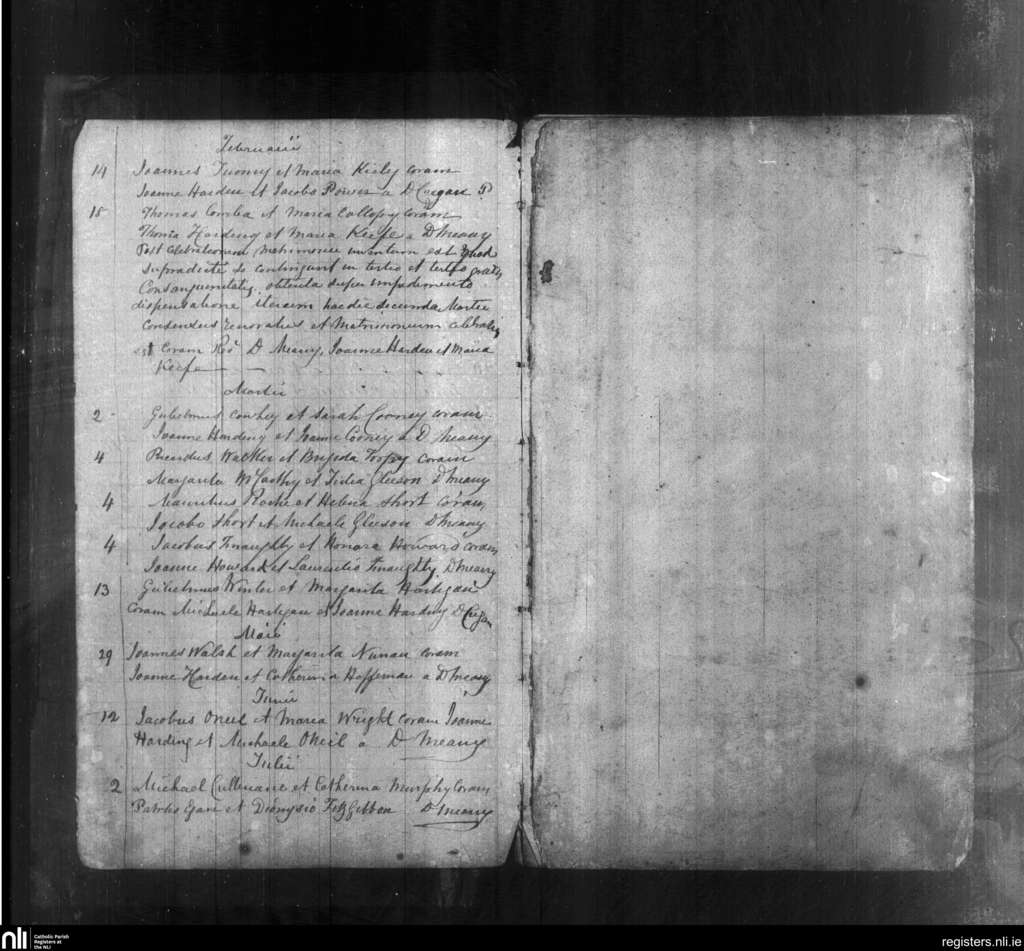 Februarii
14 Joannes Tuomy et Maria Kiely coram
Joanne Harden et Jacobo Power a D Cregan
18 Thomas Comba et Maria Collopy coram
Thoma Harding et Maria Keefe a D Meany
Post celebrationem matrimonii inventum est quod
supradicti se contingunt in tertio et tertio gradu
Consanguinitatis, obtenta super impedimento
dispensatione iterum hac die secunda Martii
Consensus renovatus et Matrimonium celebratum
est coram Revd D Meany, Joanne Harden et Maria
Keefe
Martii
2 Gulielmus Conhey et Sarah Cooney coram
Joanne Harding et Joanne Cooney a D Meany
4 Walker et Brigida coram
Margarita McCarthy et Gleeson D Meany
4 Mauritius Roche et Helena Short coram
Jacobo Short et Michaele Gleeson D Meany
4 Jacobus Finaughty et Honora Howard coram
Joanne Howard et Laurentio Finaughty D Meany
13 Gulielmus Winter et Margarita Hartigan
Coram Michaele Hartigan et Joanne Harding D Cregan
Maii
29 Joannes Walsh et Margarita Nunan coram
Joanne Harden et Catherina Heffernan a D Meany
Junii
12 Jacobus Oneil et Maria Wright coram Joanne
Harding et Michaele ONeil a D Meany
Julii
2 Michael Cullinane et Catherina Murphy Coram
Egan et Dionysio FitzGibbon D Meany
nli Catholic Parish
Registers at
the NLI
registers.nli.ie